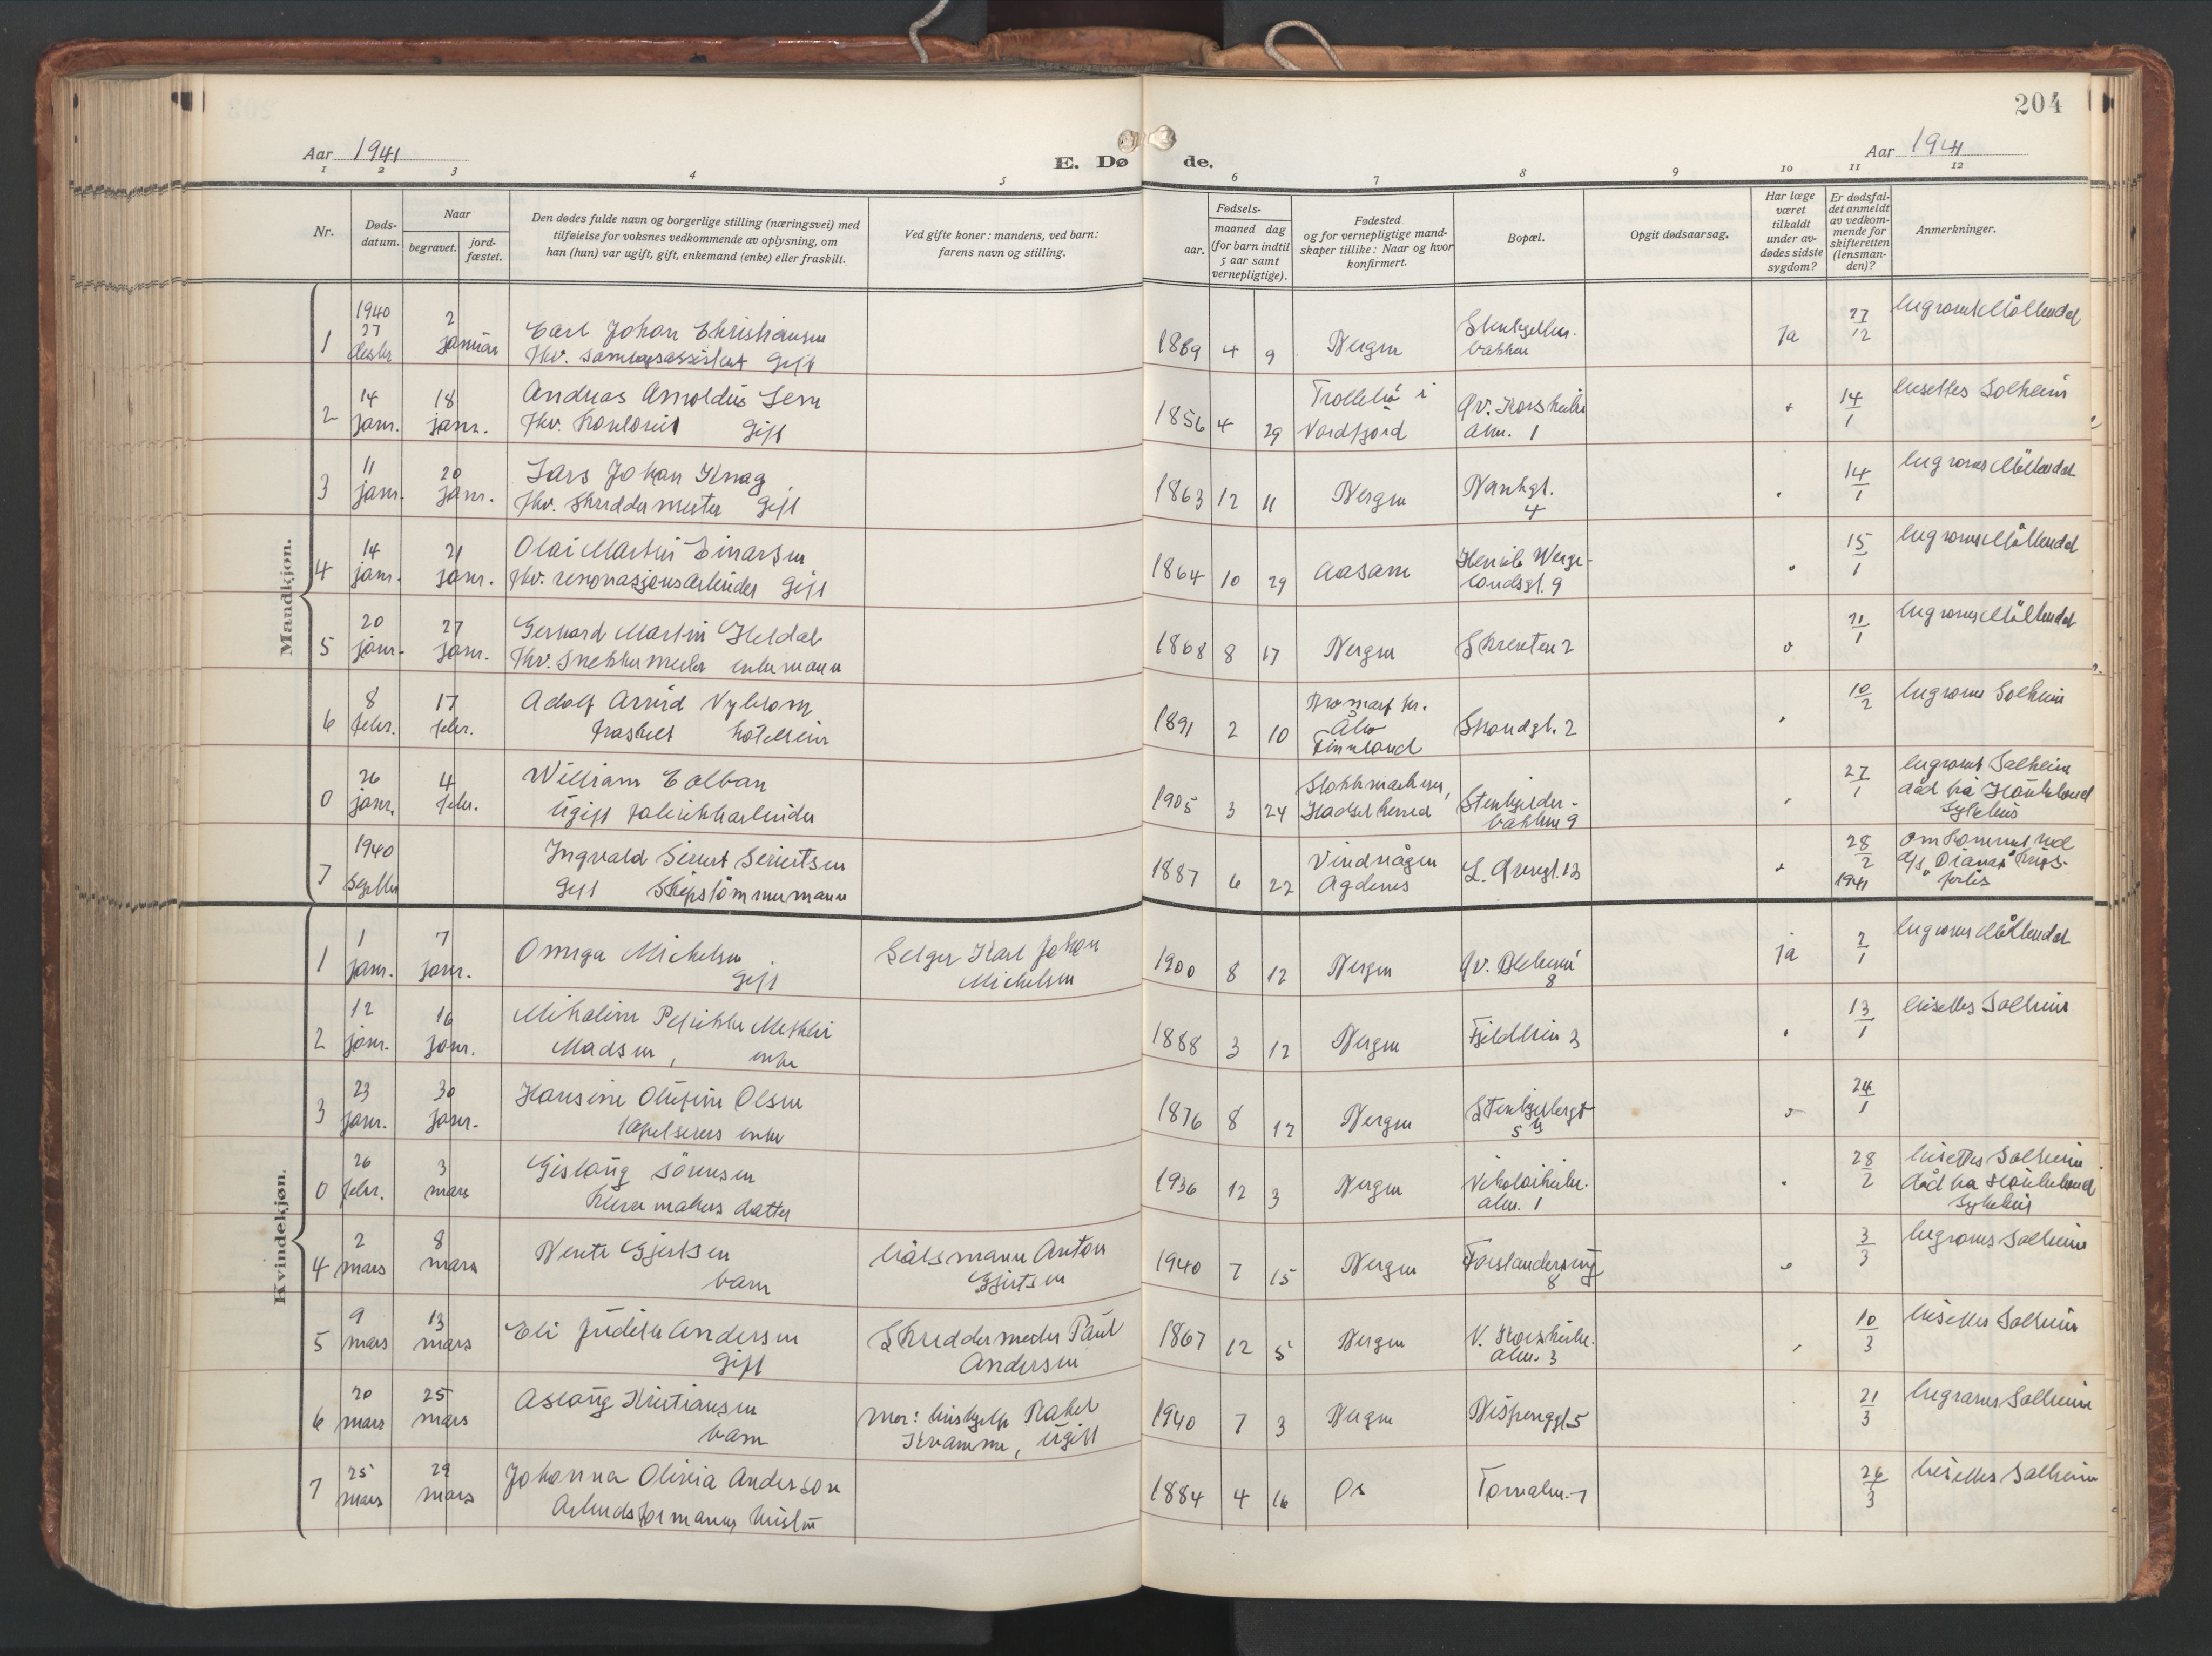 204
Aar 1941
E. Døde.
Aar 1941
1 2 3 4 5 6 7 8 9 10 11 12
Nr.
Døds-
datum.
Naar
begravet.
jord-
fæstet.
Den dødes fulde navn og borgerlige stilling (næringsvei) med
tilføielse for voksnes vedkommende av oplysning, om
han (hun) var ugift, gift, enkemand (enke) eller fraskilt.
Ved gifte koner: mandens, ved barn:
farens navn og stilling.
Fødsels-
aar.
maaned dag
(for barn indtil
5 aar samt
vernepligtige).
Fødested
og for vernepligtige mand-
skaper tillike: Naar og hvor
konfirmert.
Bopæl.
Opgit dødsaarsag.
Har læge
været
tilkaldt
under av-
dødes sidste
sygdom?
Er dødsfal-
det anmeldt
av vedkom-
mende for
skifteretten
(lensman-
den)?
Anmerkninger.
Mandkjøn.
1 1940 27 desbr 2 januar Carl Johan Christiansen
fhv. Gift
1869 4 9 Bergen ja 27/12 Møllendal
2 14 janr. 18 janr. Andreas Arnoldus
fhv. Gift
1856 4 29 i Nordfjord Øv. Korskirke
alm. 1 14/1 bisettes Solheim
3 11 janr. 20 janr. Lars Johan Knag
fhv. Skreddermester Gift
1863 12 11 Bergen 4 14/1 Møllendal
4 14 janr. 21 janr. Olai Martin Einarsen
fhv. renovasjonsarbeider Gift
1864 10 29 Aasane Henrik Werge-
landsgt. 9 15/1 Møllendal
5 20 janr. 27 janr. Gerhard Martin Heldal
fhv. Snekkermester enkemann
1868 8 17 Bergen Skrenten 2 21/1 Møllendal
6 8 febr. 17 febr. Adolf Arvid
fraskilt
1891 2 10 Bromarf kr.
Åbo
Finnland Strandgt. 2 10/2 Solheim
0 26 janr. 4 febr. William Colban
Ugift fabrikkarbeider
1905 3 24 Stokmarknes,
Hadsel herred Stenkjelder-
bakken 9 27/1 Solheim
død på Haukeland
sykehus
7 1940 Septbr Ingvald Sivert Sivertsen
Gift Skipstømmermann
1887 6 22 Vindvågen
Agdenes L. Øvregt. 13 28/2 1941 omkommet ved
d/s "Diana"s krigs-
forlis
Kvindekjøn.
1 1 janr. 7 janr. Omega Michelsen
Gift
Selger Karl Johan
Michelsen
1900 8 12 Bergen 8 ja 2/1 Møllendal
2 12 janr. 16 janr.
Madsen, enke
1888 3 12 Bergen Fjeldlien 3 13/1 bisettes Solheim
3 23 janr. 30 janr. Hansine Olufine Olsen
enke
1876 8 12 Bergen 24/1
0 26 febr. 3 mars Gislaug Sørensen
datter
1936 12 3 Bergen Nikolaikirke-
alm. 1 28/2 bisettes Solheim
død på Haukeland
Sykehus
4 2 mars 8 mars Bente Gjertsen
barn
båtsmann Anton
Gjertsen
1940 7 15 Bergen 8 3/3 Solheim
5 9 mars 13 mars Eli Judith Andersen
Gift
Skreddermester Paul
Andersen
1867 12 5 Bergen N. Korskirke-
alm. 3 10/3 bisettes Solheim
6 20 mars 25 mars Aslaug Kristiansen
barn
Mor: hushjelp Rakel
Kvamme, ugift
1940 7 3 Bergen Bispenggt. 5 21/3 Solheim
7 25 mars 29 mars Johanna Olivia Anderson
Arbeidsformanns hustru
1884 4 16 Os Torvalm. 7 26/3 bisettes Solheim